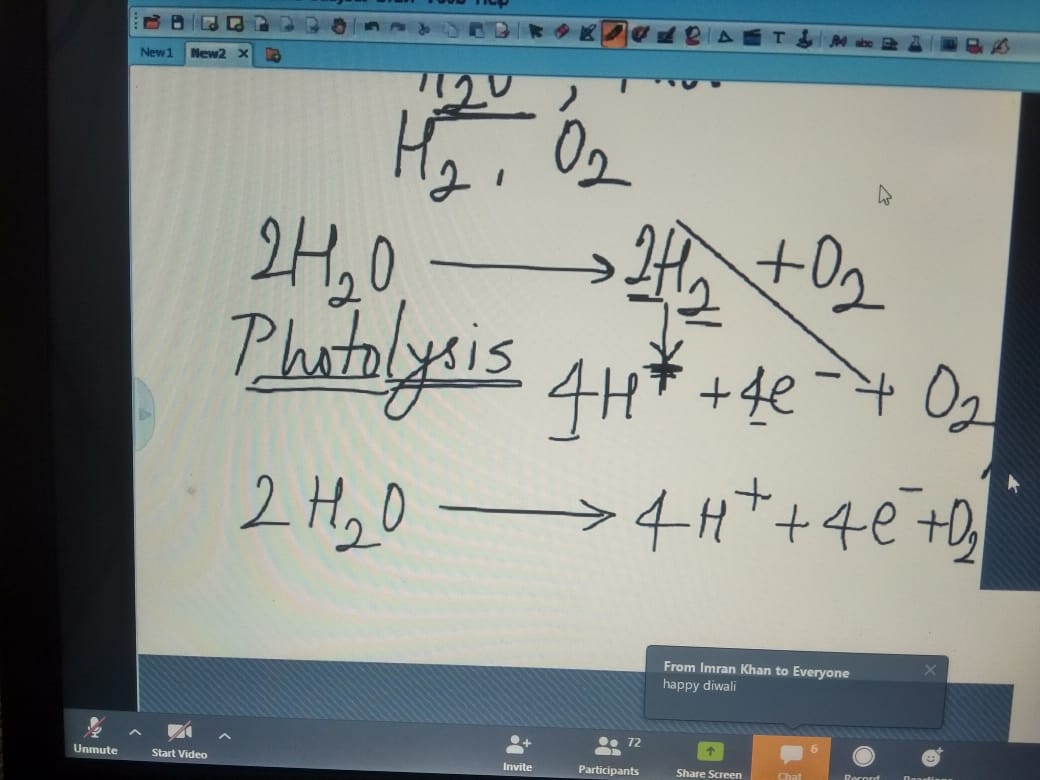 New1 New2 X
H2O ,
H2, O2
2H2O → 2H2 + O2
Photolysis
4H+ + 4e- + O2
2H2O → 4H+ + 4e- + O2
From Imran Khan to Everyone
happy diwali
Unmute Start Video Invite 72 Participants Share Screen 6 Chat Record